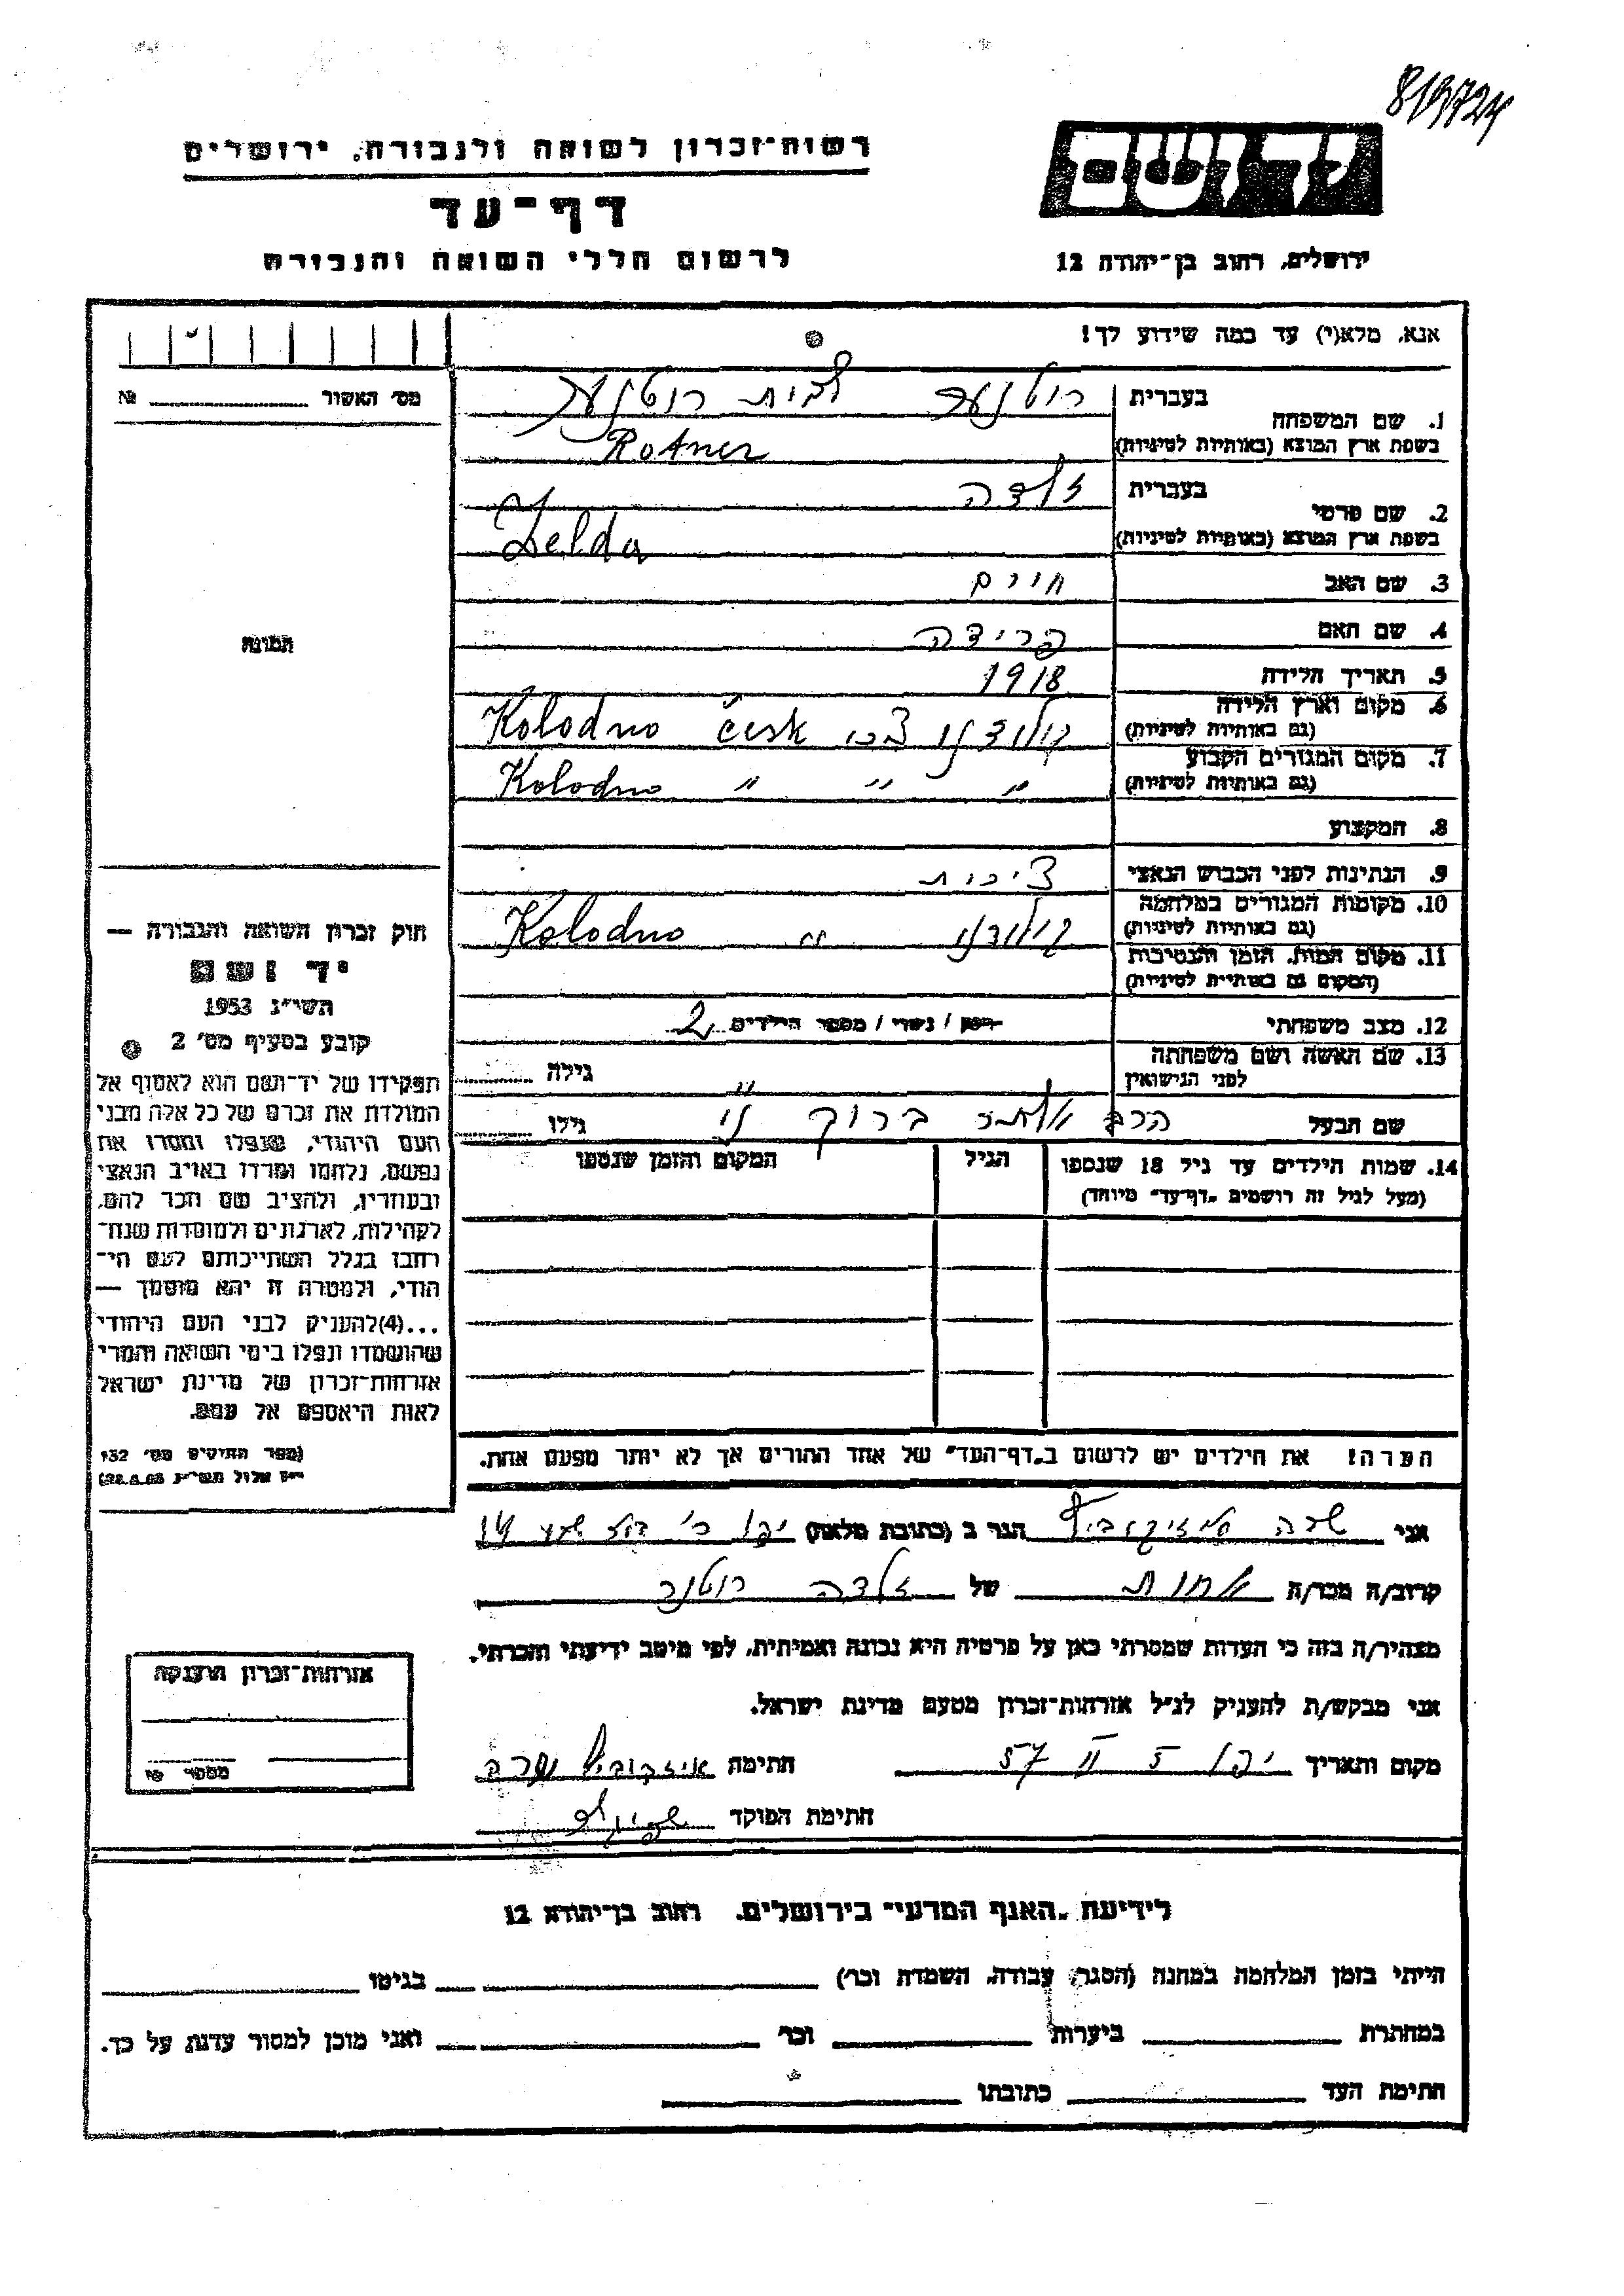 819724
ידושם
רשות־זכרון לשואה ולגבורה, ירושלים
דף־עד
לרשום חללי השואה והגבורה
ירושלים, רחוב בן־יהודה 12
אנא, מלא(י) עד כמה שידוע לך!
מס׳ האשור № 
1. שם המשפחה
בעברית רוטנער לבית רוטנער
בשפת ארץ המוצא (באותיות לטיניות) Rotner
2. שם פרטי
בעברית זלדה
בשפת ארץ המוצא (באותיות לטיניות) Zelda
3. שם האב חיים
4. שם האם פרידה
5. תאריך הלידה 1918
6. מקום וארץ הלידה קולודנו צכי česk Kolodno
(גם באותיות לטיניות)
7. מקום המגורים הקבוע " " " Kolodno
(גם באותיות לטיניות)
8. המקצוע
9. הנתינות לפני הכבוש הנאצי צ׳כית
10. מקומות המגורים במלחמה קולודנו " Kolodno
(גם באותיות לטיניות)
11. מקום המות, הזמן והנסיבות
(המקום גם באותיות לטיניות)
12. מצב משפחתי רווק / נשוי / מספר הילדים 2
13. שם האשה ושם משפחתה
לפני הנישואין גילה
שם הבעל ברוך גילו
14. שמות הילדים עד גיל 18 שנספו הגיל המקום והזמן שנספו
(מעל לגיל זה רושמים „דף־עד" מיוחד)
הערה! את הילדים יש לרשום ב„דף־העד" של אחד ההורים אך לא יותר מפעם אחת.
התמונה
חוק זכרון השואה והגבורה —
יד ושם
תשי״ג 1953
קובע בסעיף מס׳ 2
תפקידו של יד־ושם הוא לאסוף אל
המולדת את זכרם של כל אלה מבני
העם היהודי, שנפלו ומסרו את
נפשם, נלחמו ומרדו באויב הנאצי
ובעוזריו, ולהציב שם וזכר להם,
לקהילות, לארגונים ולמוסדות שנח־
רבו בגלל השתייכותם לעם הי־
הודי, ולמטרה זו יהא מוסמך —
...(4)להעניק לבני העם היהודי
שהושמדו ונפלו בימי השואה והמרי
אזרחות־זכרון של מדינת ישראל
לאות היאספם אל עמם.
(ספר החוקים מס׳ 132
אני שרה הגר ב (כתובת מלאה) יפו 14
קרוב/ה מכר/ה אחות של זלדה רוטנר
מצהיר/ה בזה כי העדות שמסרתי כאן על פרטיה היא נכונה ואמיתית, לפי מיטב ידיעתי והכרתי.
אני מבקש/ת להעניק לנ״ל אזרחות־זכרון מטעם מדינת ישראל.
מקום ותאריך יפו 5 II 57 חתימה
חתימת הפוקד
אזרחות־זכרון הוענקה
מספר №
לידיעת „האגף המדעי" בירושלים, רחוב בן־יהודא 12
הייתי בזמן המלחמה במחנה (הסגר, עבודה, השמדה וכו׳) בגיטו
במחתרת ביערות וכו׳ ואני מוכן למסור עדות על כך.
חתימת העד כתובתו